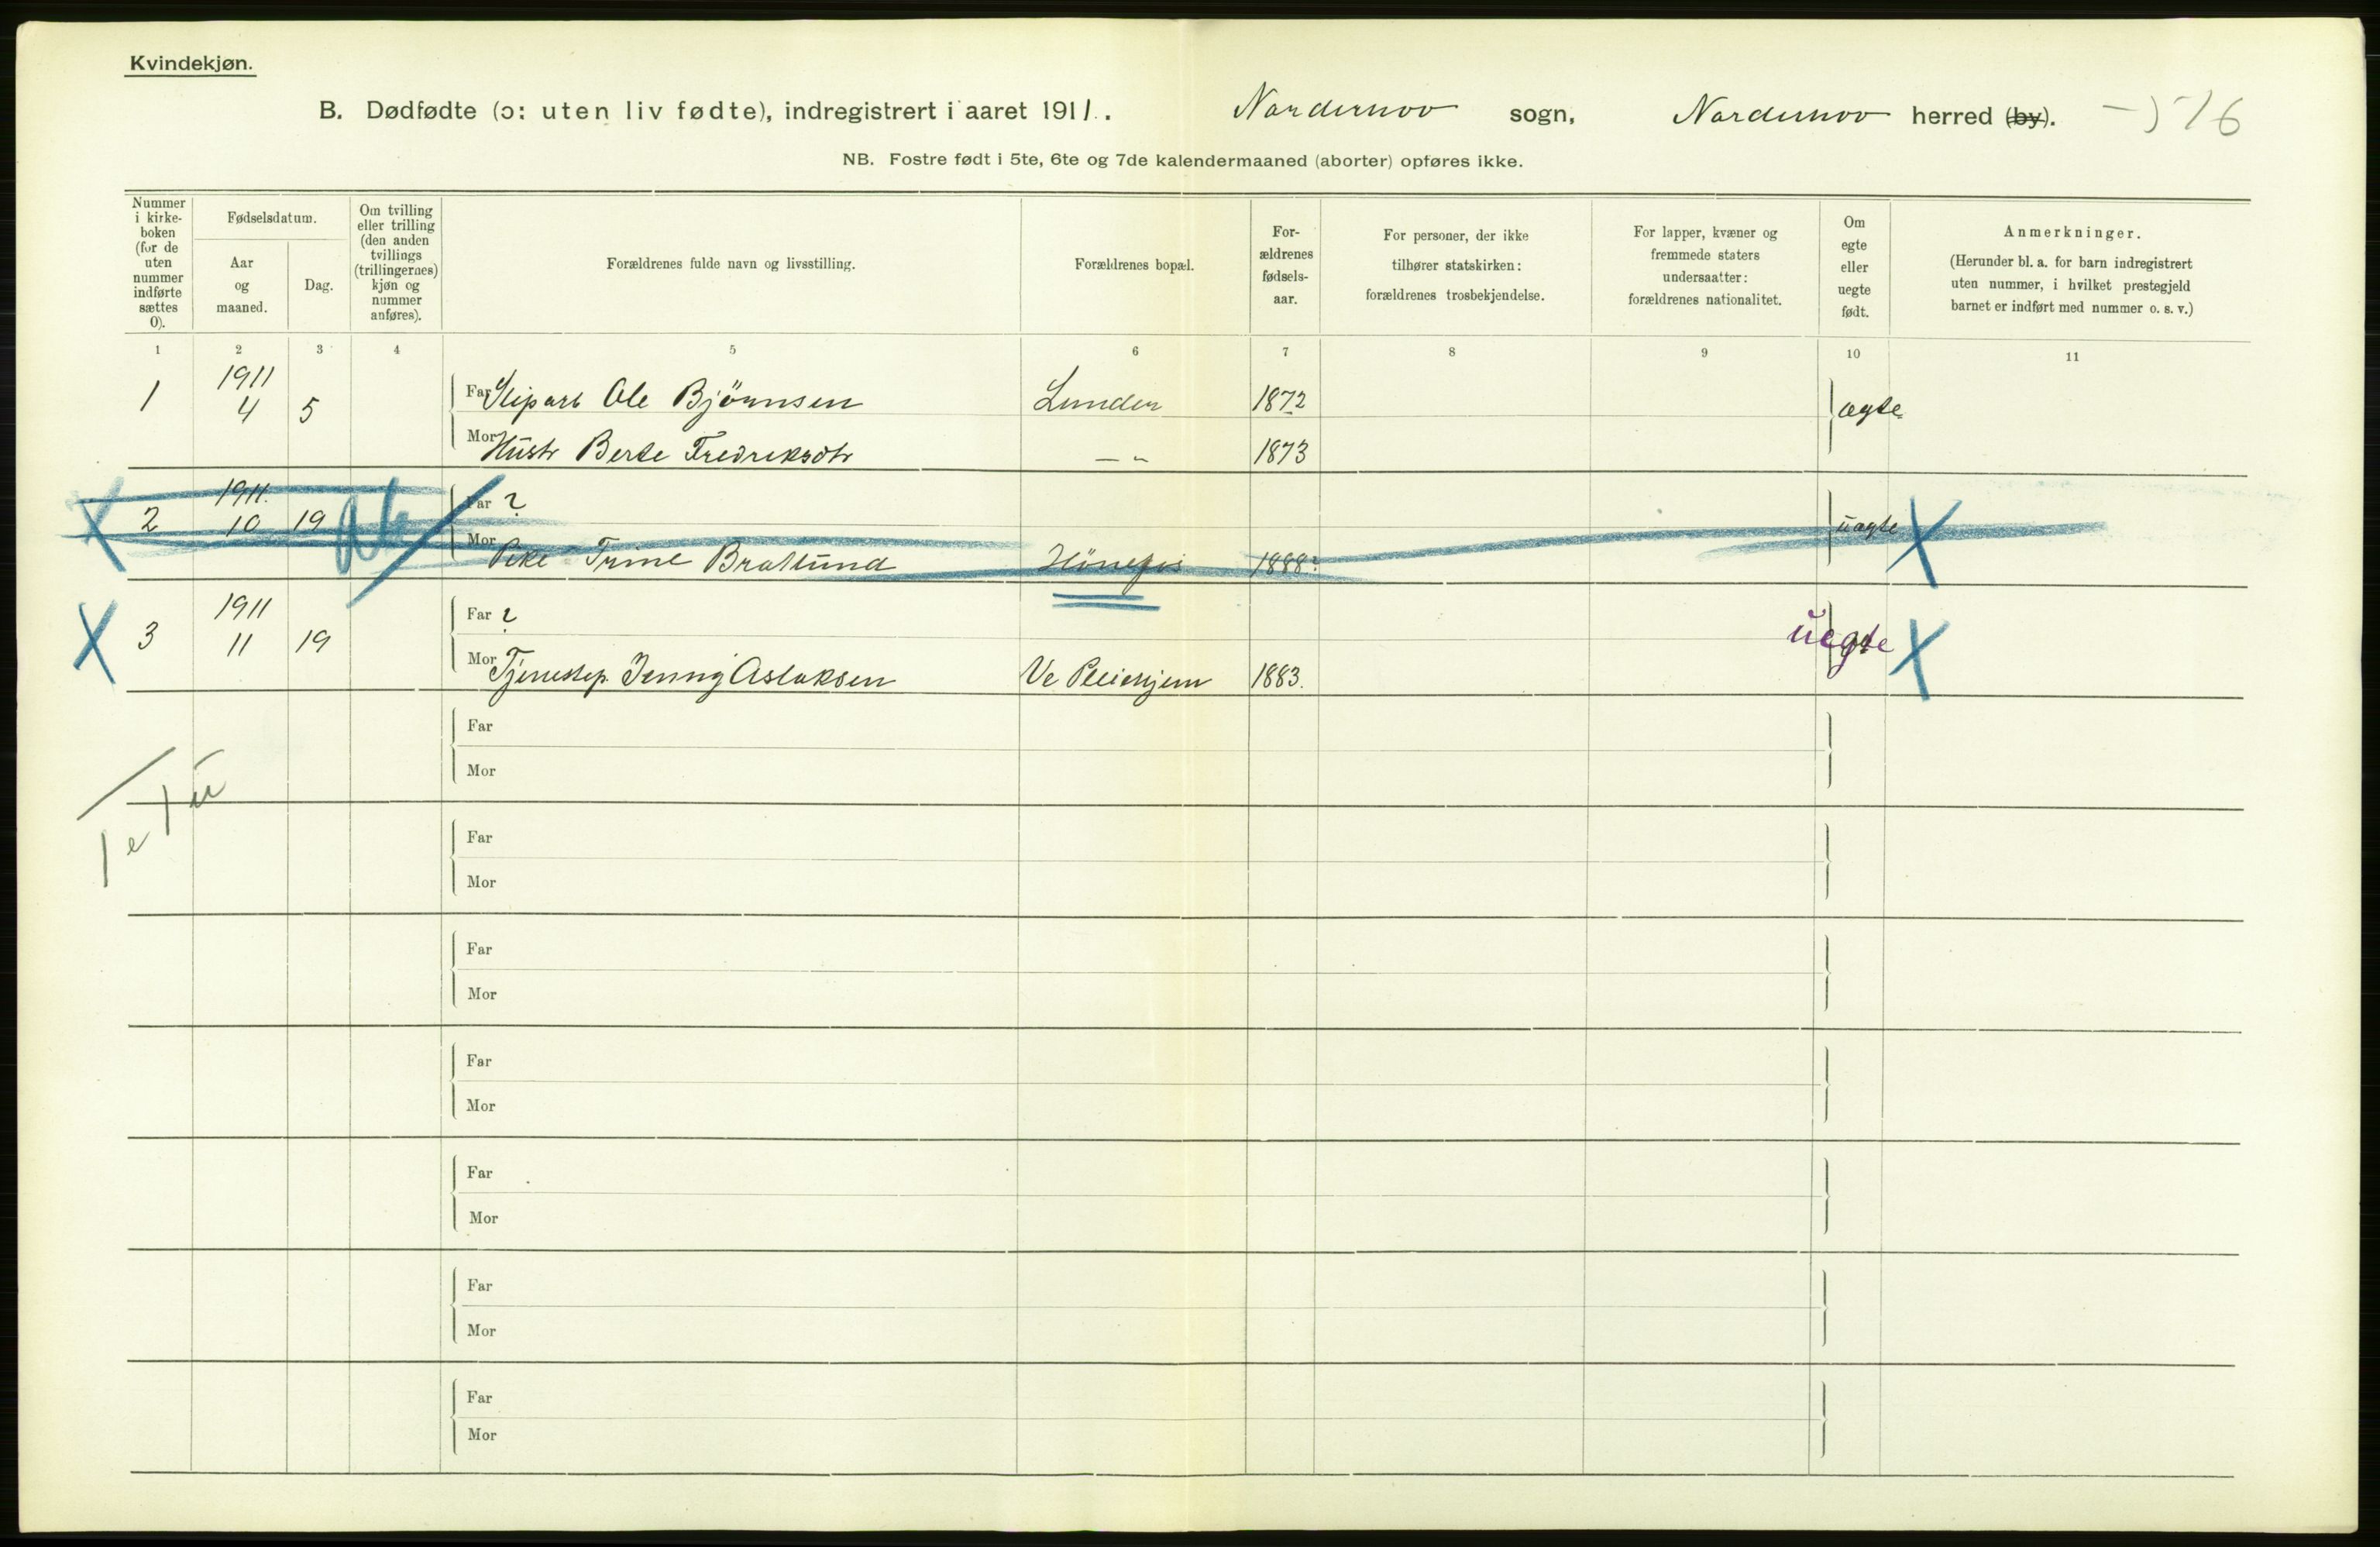 Kvindekjøn.
B. Dødfødte (ɔ: uten liv fødte), indregistrert i aaret 1911. Norderhov sogn, Norderhov herred (by).
NB. Fostre født i 5te, 6te og 7de kalendermaaned (aborter) opføres ikke.
Nummer i kirke-boken (for de uten nummer indførte sættes 0).
Fødselsdatum.
Aar og maaned.
Dag.
Om tvilling eller trilling (den anden tvillings (trillingernes) kjøn og nummer anføres).
Forældrenes fulde navn og livsstilling.
Forældrenes bopæl.
For-ældrenes fødsels-aar.
For personer, der ikke tilhører statskirken: forældrenes trosbekjendelse.
For lapper, kvæner og fremmede staters undersaatter: forældrenes nationalitet.
Om egte eller uegte født.
Anmerkninger.
(Herunder bl. a. for barn indregistrert uten nummer, i hvilket prestegjeld barnet er indført med nummer o. s. v.)
1 2 3 4 5 6 7 8 9 10 11
1 1911 4 5 Far Sliparb Ole Bjørnsen Lunden 1872 ægte
Mor Hustr Berte Fredriksdtr — " 1873
2 1911. 10 19 Far ? uægte
Mor Pike Trine Bratlund Hönefos 1888?
3 1911 11 19 Far ? uegte
Mor Tjenestep. Jenny Aslaksen Ve Pleiehjem 1883.
Far
Mor
1 e 1 u
Far
Mor
Far
Mor
Far
Mor
Far
Mor
Far
Mor
Far
Mor